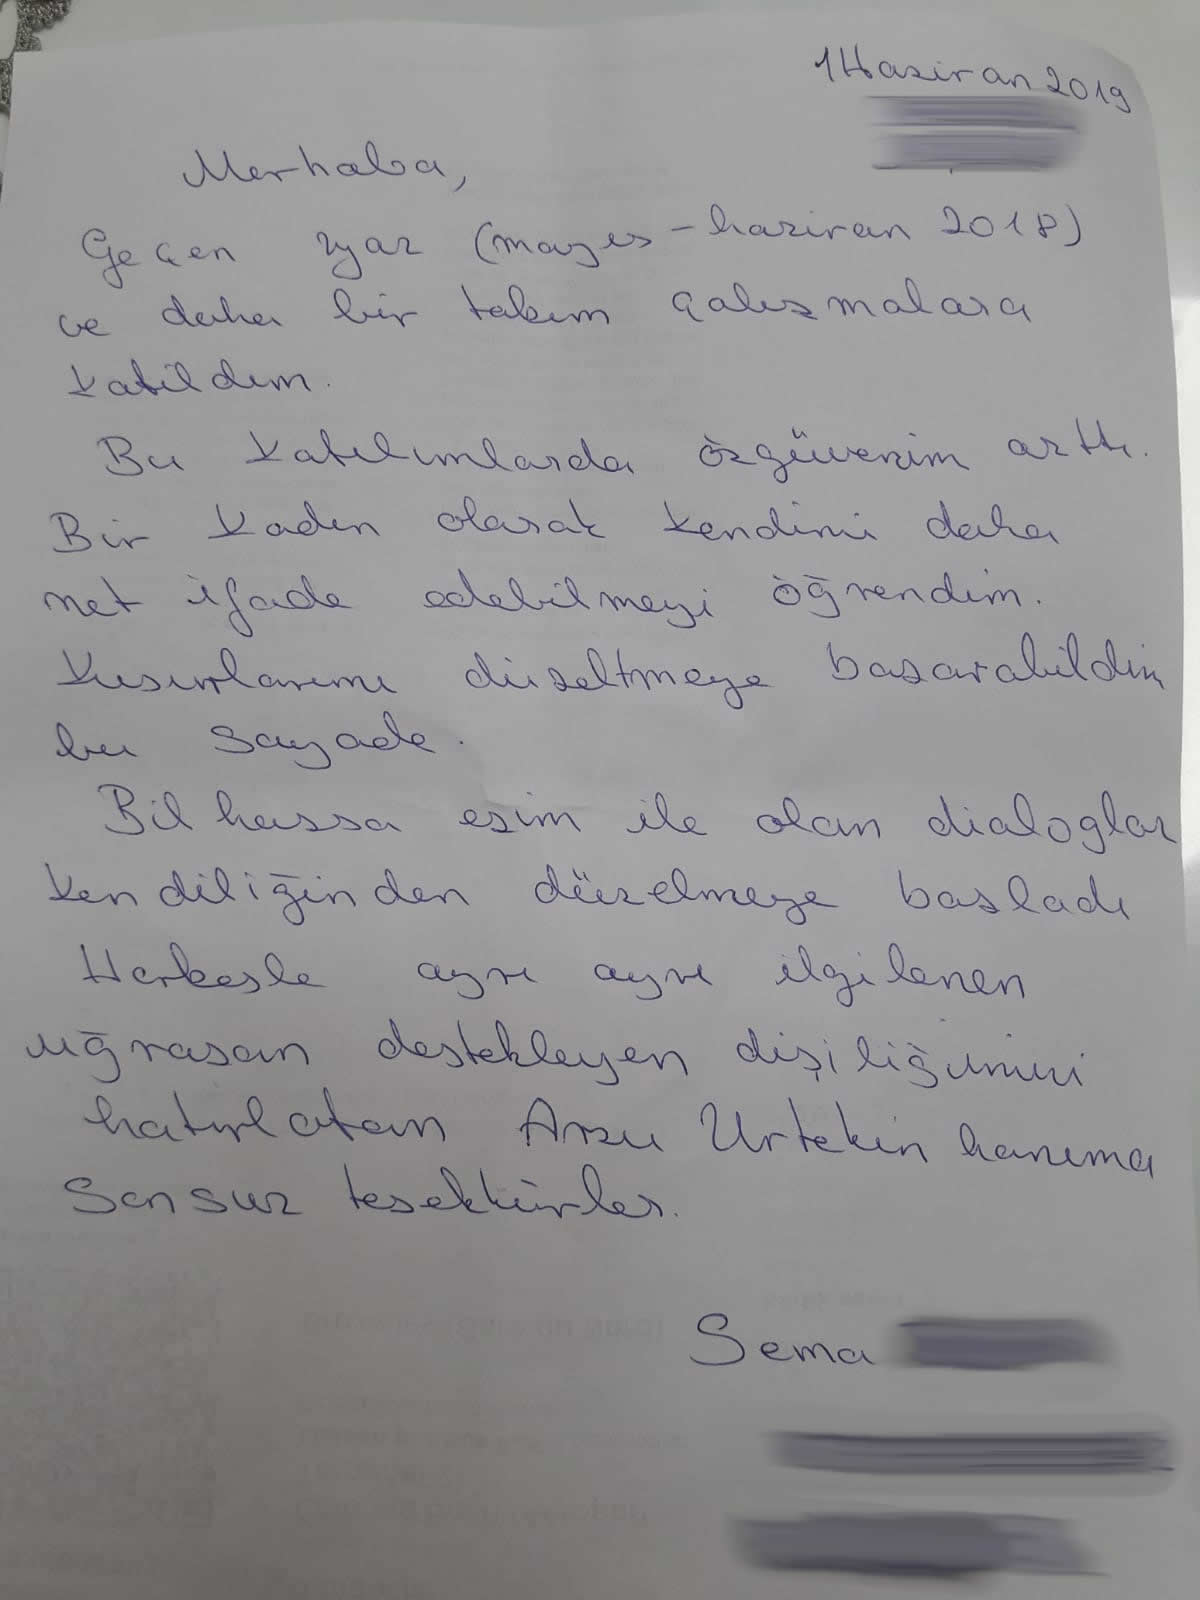 1 Haziran 2019
Merhaba,
Geçen yaz (mayıs-haziran 2018)
ve daha bir takım çalışmalara
katıldım.
Bu katılımlarda özgüvenim arttı.
Bir kadın olarak kendimi daha
net ifade edebilmeyi öğrendim.
Kusurlarımı düzeltmeye basarabildim
bu sayade.
Bilhassa esim ile olan dialoglar
kendiliğinden düzelmeye basladı
Herkesle ayrı ayrı ilgilenen
uğrasan destekleyen dişiliğimizi
hatırlatan Arzu Urtekin hanıma
Sonsuz tesekkürler.
Sema